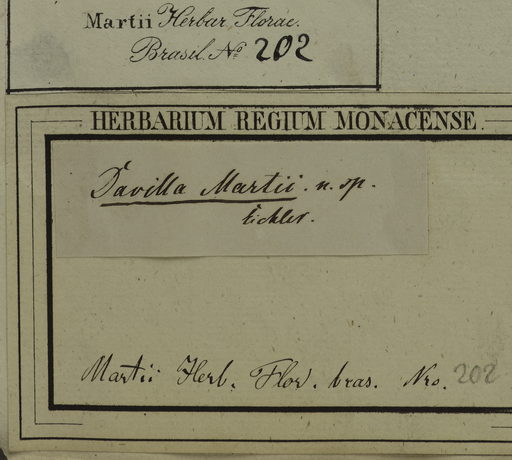 Martii Herbar. Florae.
Brasil. No 202
HERBARIUM REGIUM MONACENSE.
Davilla Martii. n. sp.
Eichler.
Martii Herb. Flor. bras. Nro. 202